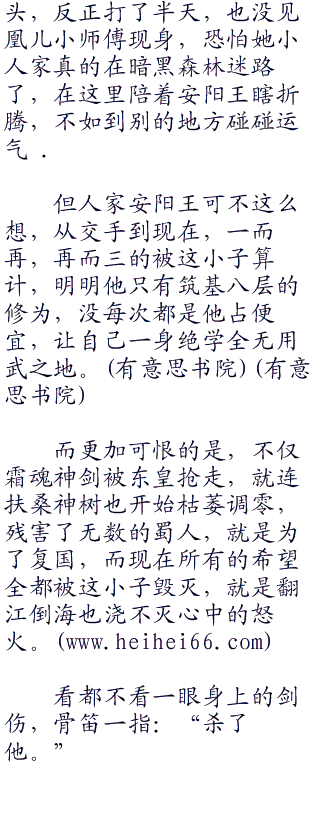 头，反正打了半天，也没见
凰儿小师傅现身，恐怕她小
人家真的在暗黑森林迷路
了，在这里陪着安阳王瞎折
腾，不如到别的地方碰碰运
气 .
但人家安阳王可不这么
想，从交手到现在，一而
再，再而三的被这小子算
计，明明他只有筑基八层的
修为，没每次都是他占便
宜，让自己一身绝学全无用
武之地。(有意思书院)(有意
思书院)
而更加可恨的是，不仅
霜魂神剑被东皇抢走，就连
扶桑神树也开始枯萎调零，
残害了无数的蜀人，就是为
了复国，而现在所有的希望
全都被这小子毁灭，就是翻
江倒海也浇不灭心中的怒
火。(www.heihei66.com)
看都不看一眼身上的剑
伤，骨笛一指：“杀了
他。”